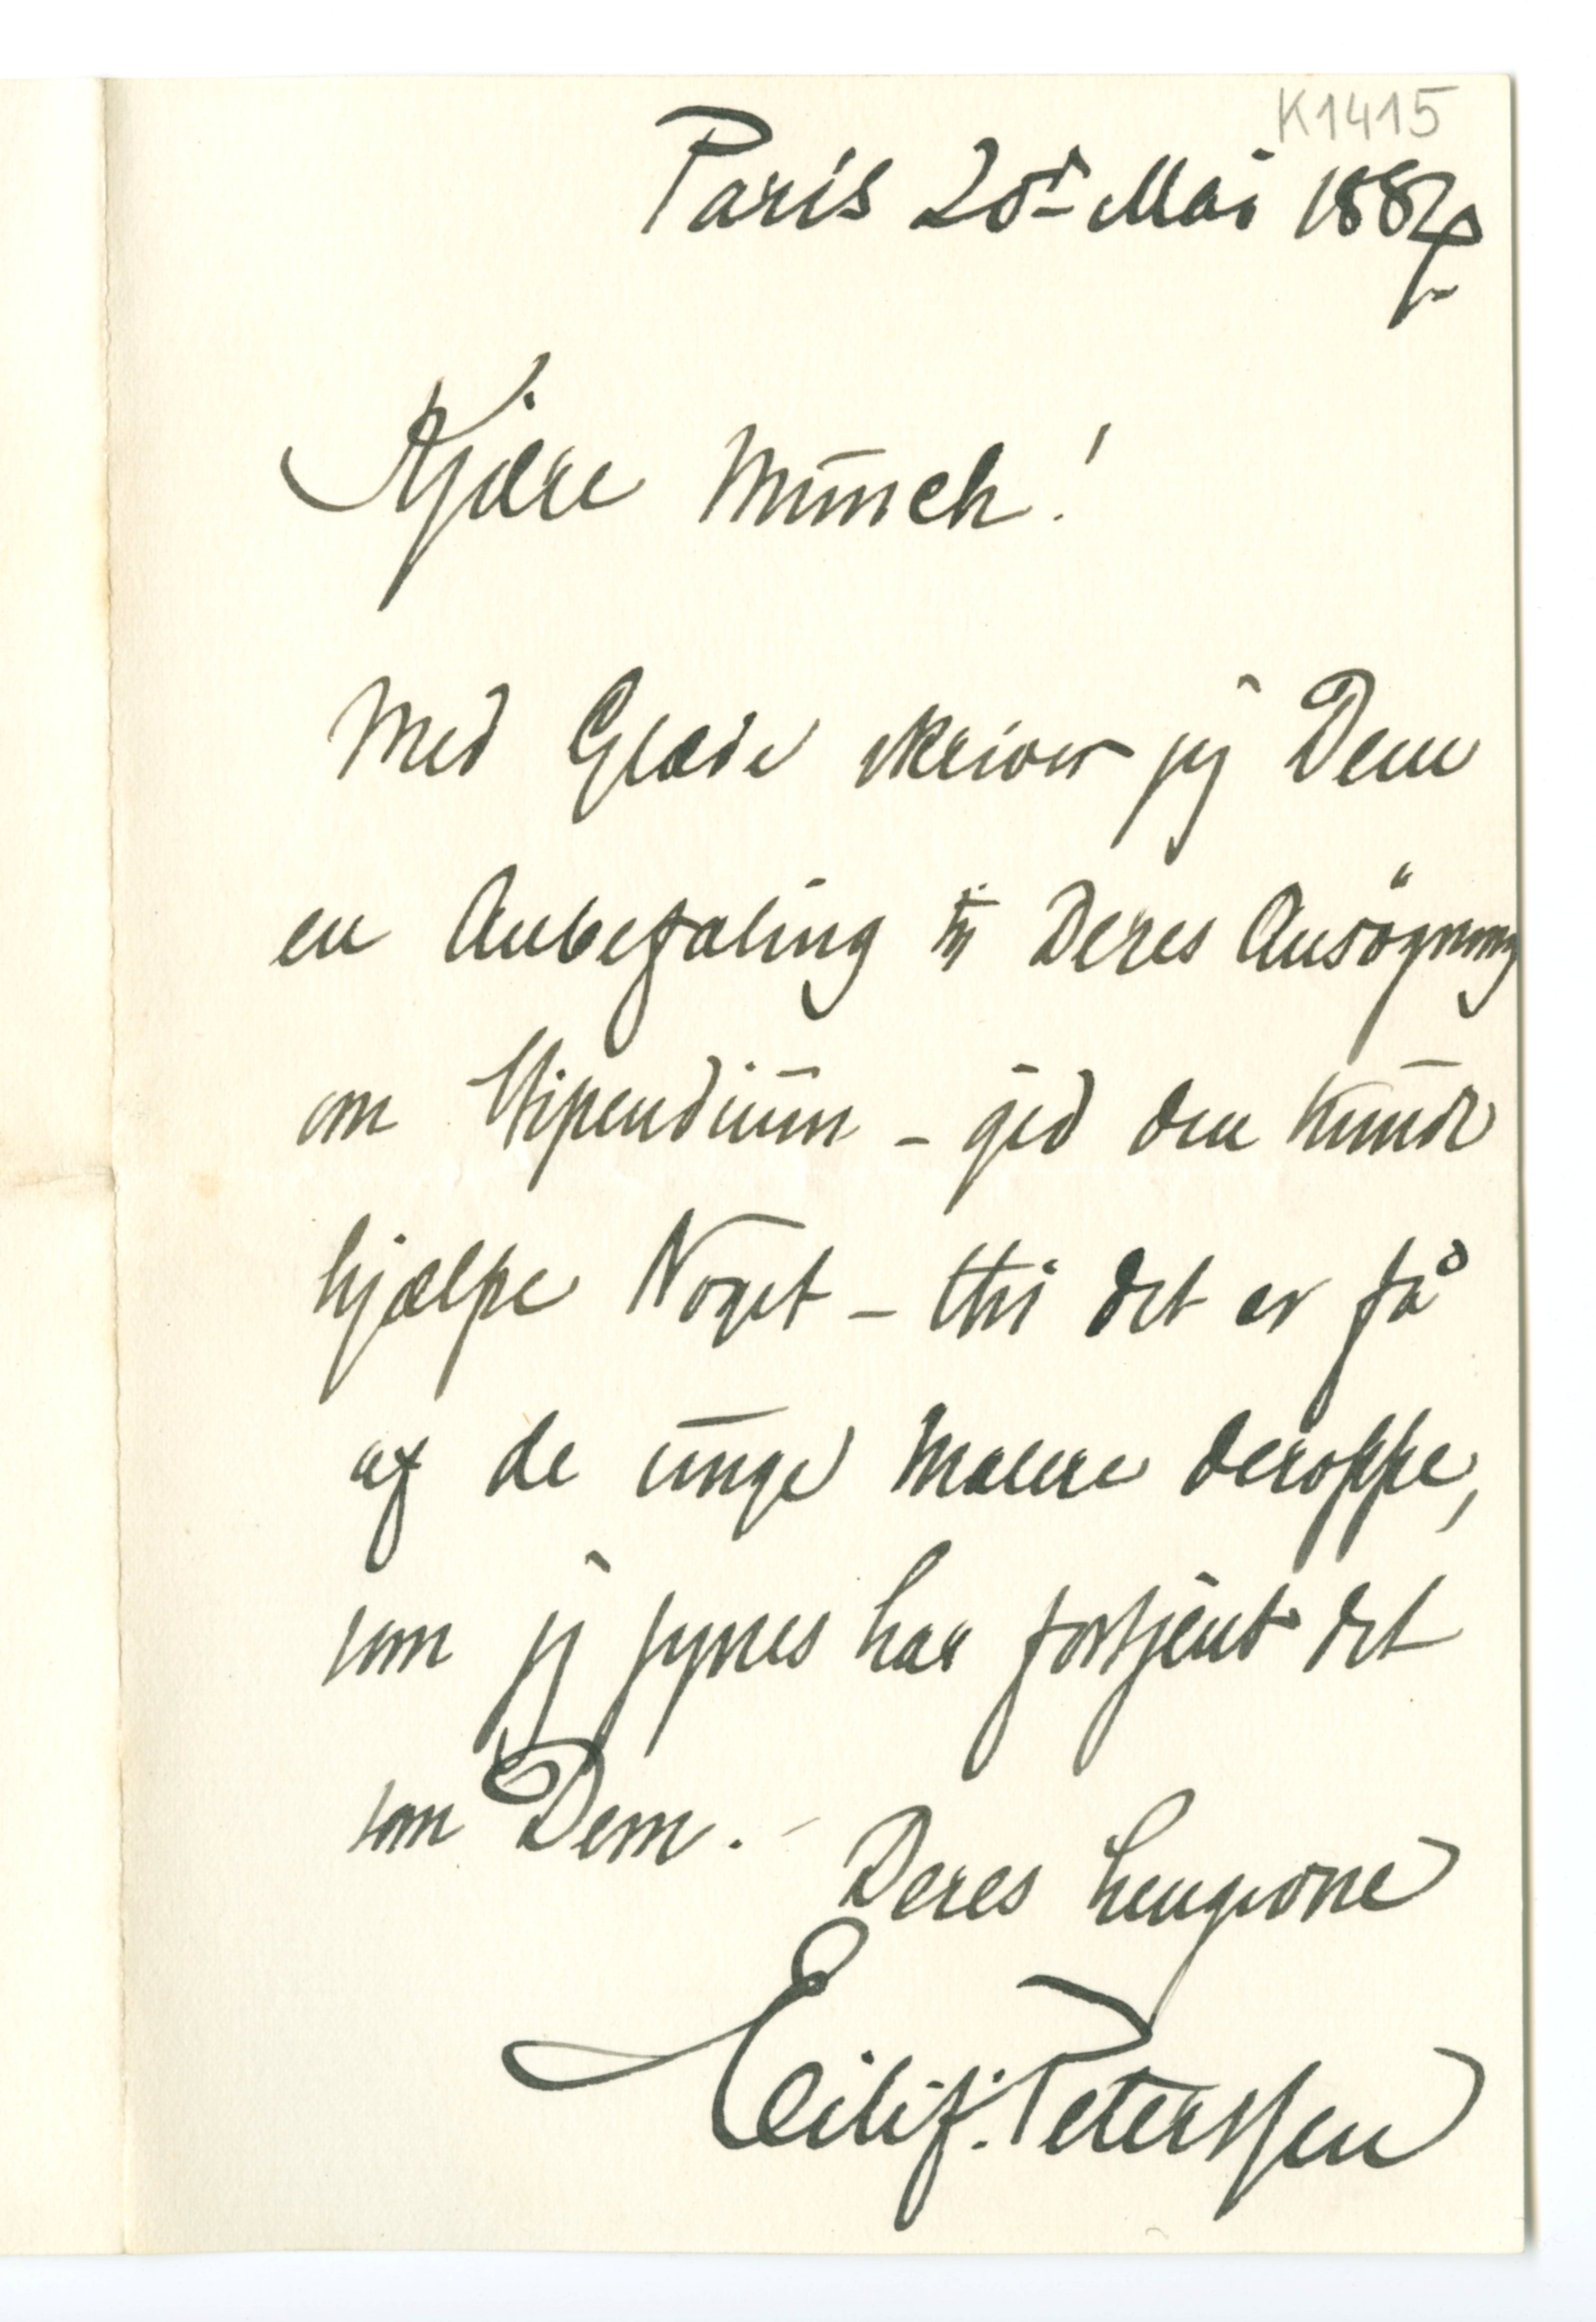 K1415
Paris 20d Mai 1887
Kjære Munch!
Med Glæde skriver jeg Dem
en Anbefaling til Deres Ansögning
om Stipendium – gid den kunde
hjælpe Noget – thi det er få
af de unge Malere deroppe,
som jeg synes har fortjent det
som Dem. –
Deres hengivne
Eilif: Peterssen